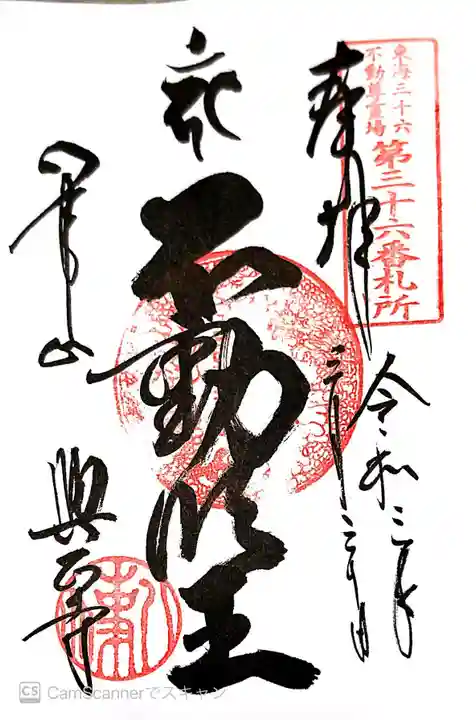 東海三十六
不動尊霊場
第三十六番札所
奉拝
令和三年
不動明王
八事山
興正寺
CS CamScannerでスキャン